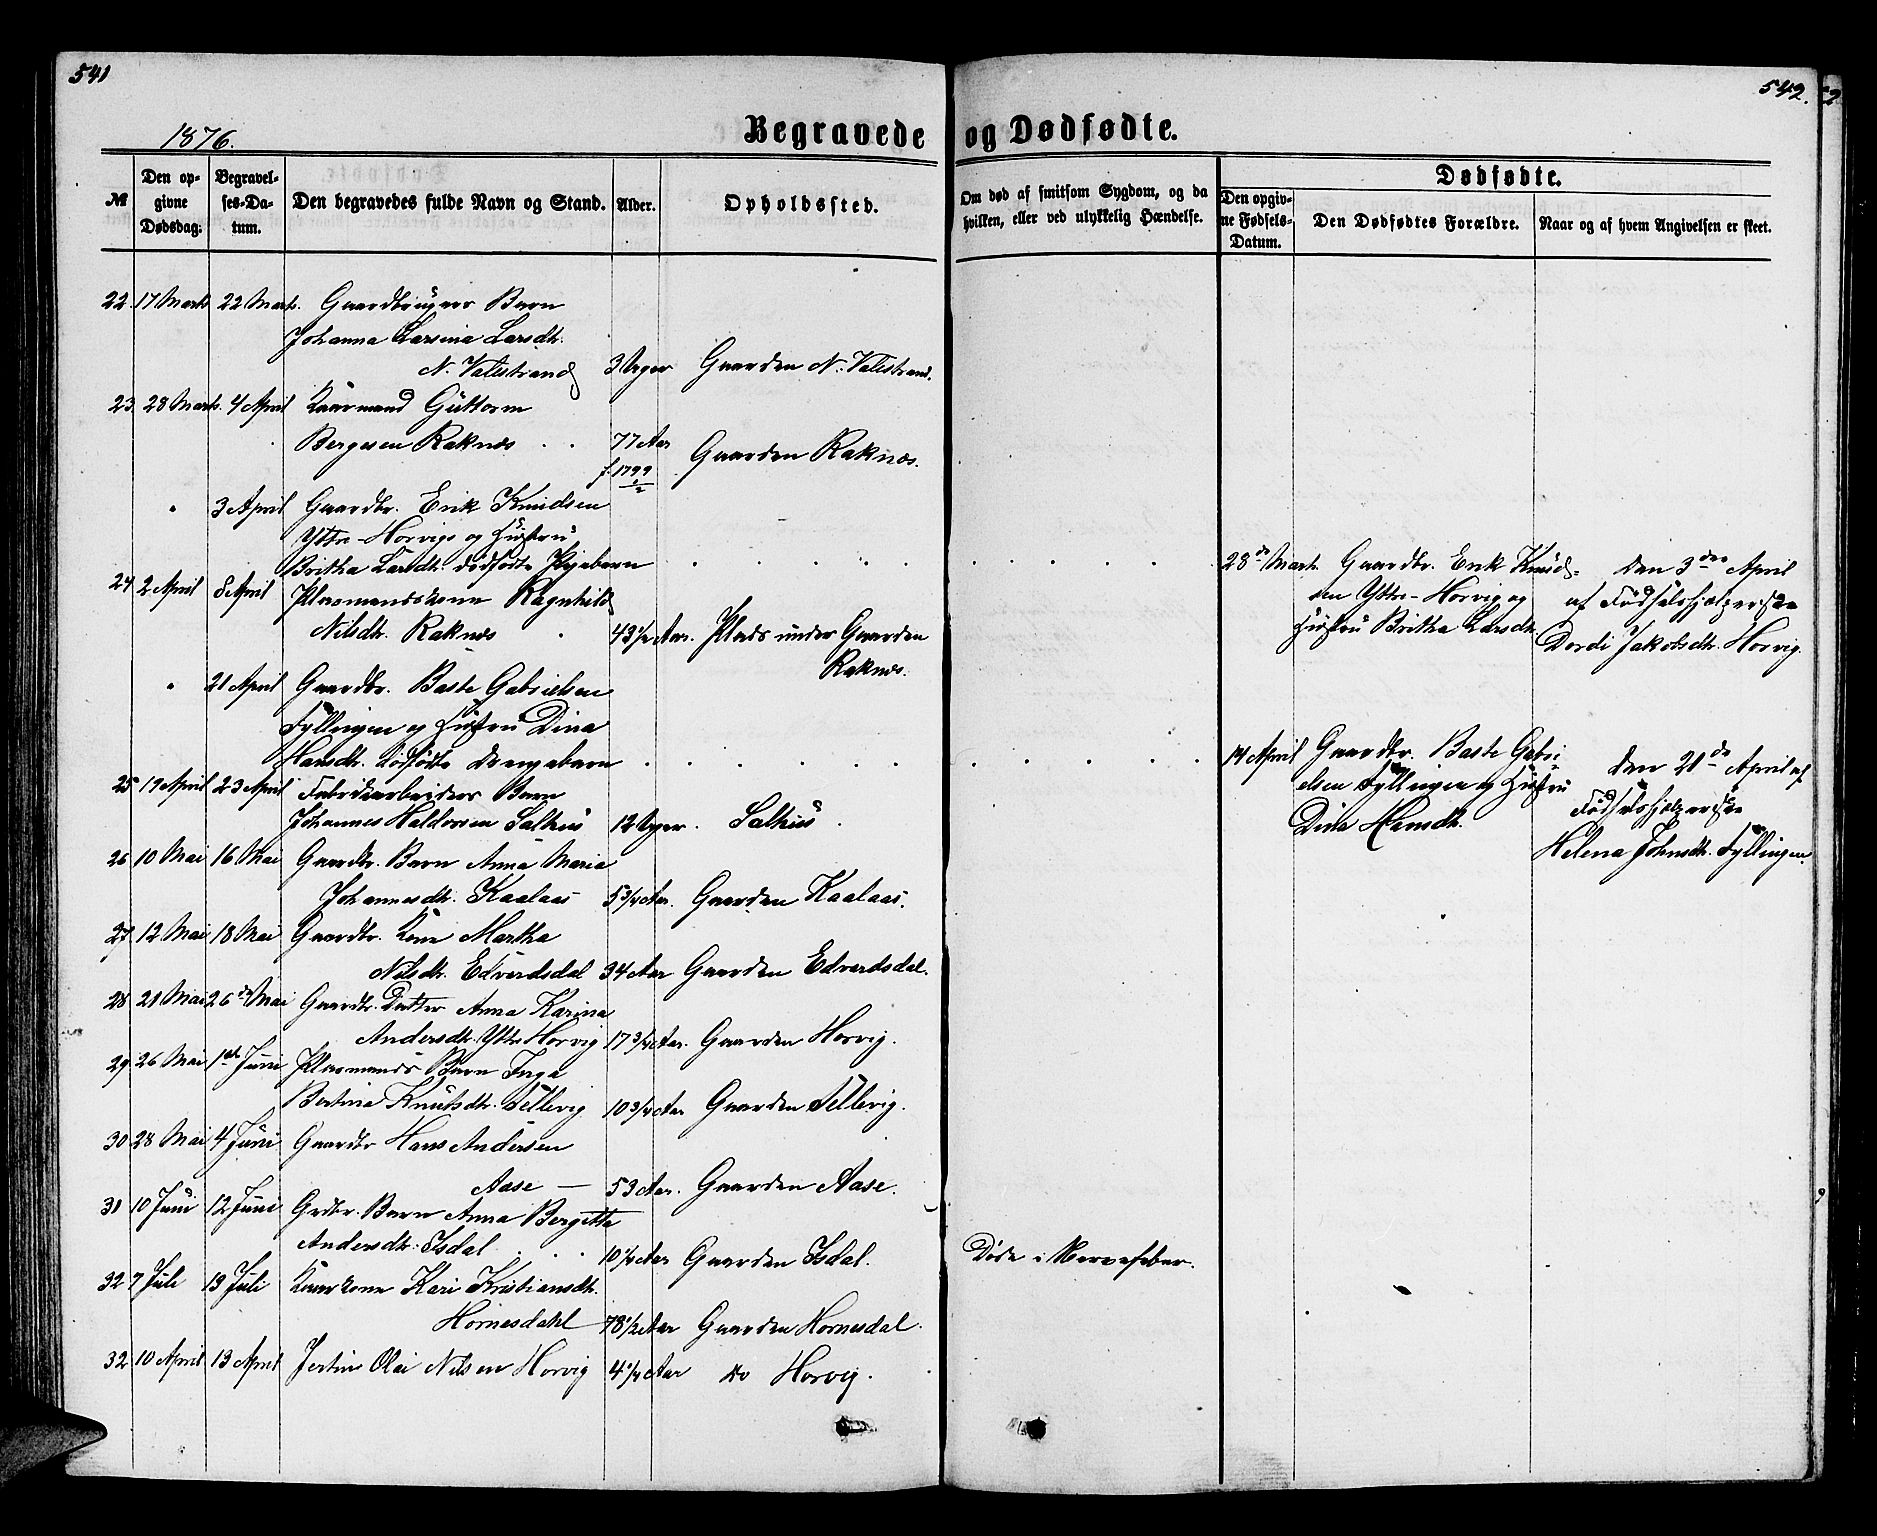 541
542.
1876.
Begravede og Dødfødte.
№
Den opgivne Dødsdag.
Begravelses-Datum.
Den begravedes fulde Navn og Stand.
Alder.
Opholdssted.
Om død af smitsom Sygdom, og da hvilken, eller ved ulykkelig Hændelse.
Dødfødte.
Den opgivne Fødsels-Datum.
Den Dødfødtes Forældre.
Naar og af hvem Angivelsen er skeet.
22 17 Marts 22 Marts. Gaardbrugers Barn
Johanna Larsina Larsdtr.
N. Valestrand 3 Uger Gaarden N. Valestrand.
23 28 Marts. 4 April Kaarmand Guttorm
Bergesen Raknes . . 77 Aar Gaarden Raknes.
f. 1799
" 3 April Gaardbr. Erik Knudsen
Yttre-Horvig og Hustru
Britha Larsdtr. dødfødte Pigebarn . . . . . . . .
28de Marts Gaardbr. Erik Knud-
sen Yttre-Horvig og
Hustru Britha Larsdtr.
Den 3die April
af Fødselshjelpersken
Dordi Jakobsdtr. Horvig.
24 2 April 8 April Pladsmandskone Ragnhild
Nilsdtr. Raknes . 43 1/2 Aar. Plads under Gaarden
Raknes.
" 21 April Gaardbr. Baste Gabrielsen
Fyllingen og Hustru Dina
Hansdtr. dødfødte Drengebarn . . . . . . . .
14 April Gaardbr. Baste Gabri-
elsen Fyllingen og Hustru
Dina Hansdtr.
Den 21de April af
Fødselshjelpersken
Helena Johnsdtr. Fyllingen
25 19 April 23 April Fabrikarbeiders Barn
Johannes Haldorsen Salhus 12 Uger. Salhus .
26 10 Mai 16 Mai Gaardbr. Barn Anna Maria
Johannesdtr. Kaalaas 5 3/4 Aar. Gaarden Kaalaas.
27 12 Mai 18 Mai Gaardbr. Kone Martha
Nilsdtr. Edvardsdal 34 Aar Gaarden Edvardsdal.
28 21 Mai 26de Mai Gaardbr. Datter Anna Karina
Andersdtr. Yttre Horvig 17 3/4 Aar. Gaarden Horvig.
29 26 Mai 1ste Juni Pladsmands Barn Inga
Bertina Knutsdtr. Tellevig 10 3/4 Aar Gaarden Tellevig.
30 28 Mai 4 Juni Gaardbr Hans Andersen
Aase — 53 Aar. Gaarden Aase.
31 10 Juni 12 Juni Grdbr. Barn Anna Bergitte
Andersdtr. Isdal . . . 10 1/4 Aar Gaarden Isdal. Døde i Nervefeber.
32 7 Juli 13 Juli Kaarkone Kari Kristiansdtr.
Hornesdahl 78 1/2 Aar Gaarden Hornesdal.
32 10 April 13 April Jertin Olai Nilsen Horvig 4 1/4 Aar do Horvig.